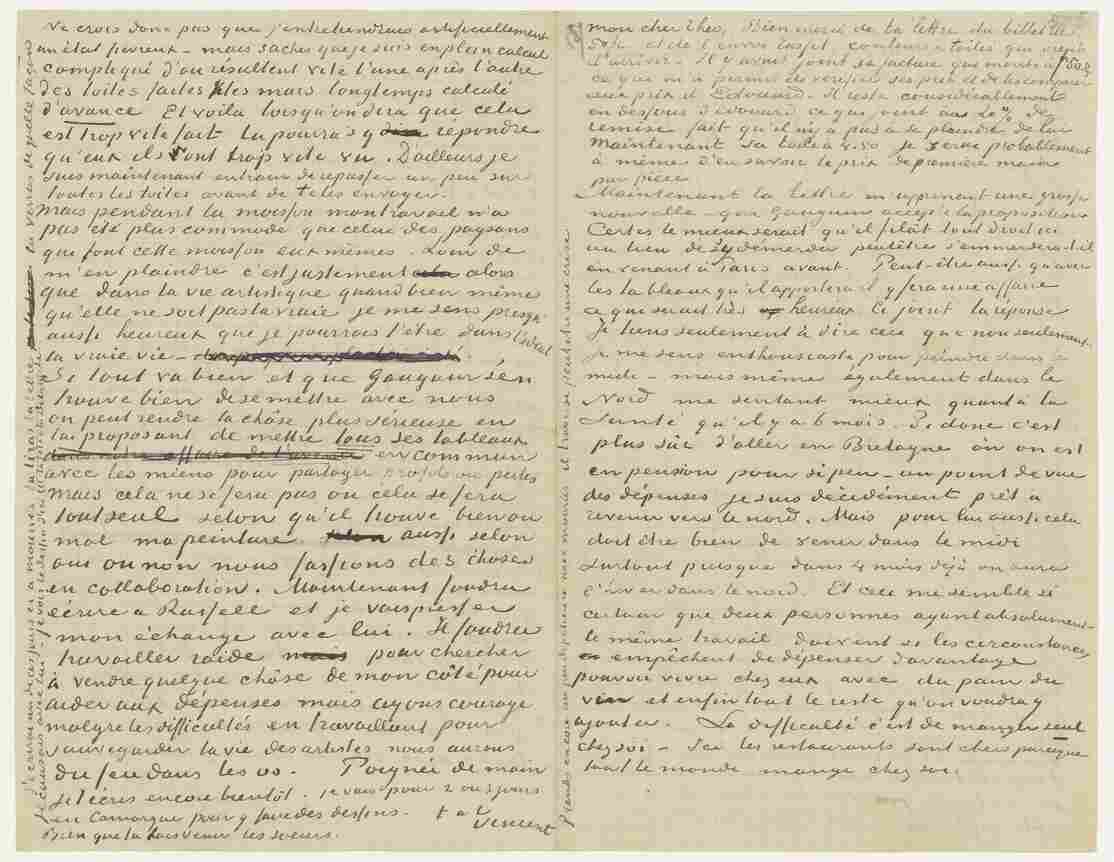 Ne crois donc pas que j'entretiendrais artificiellement
un état fievreux – mais sache que je suis en plein calcul
compliqué d'où résultent vite l'une après l'autre
des toiles faites vites mais longtemps calculé
d'avance Et voila lorsqu'on dira que cela
est trop vite fait tu pourras y repondre
qu'eux ils ont trop vite vu. D'ailleurs je
suis maintenant entrain de repasser un peu sur
toutes les toiles avant de te les envoyer.
Mais pendant la moisson mon travail n'a
pas été plus commode que celui des paysans
qui font cette moisson eux mêmes. Loin de
m'en plaindre c'est justement alors
que dans la vie artistique quand bien même
qu'elle ne soit pas la vraie je me sens presqu
aussi heureux que je pourrais l'être dans l'ideal
la vraie vie –
Si tout va bien et que Gauguin s'en
trouve bien de se mettre avec nous
on peut rendre la chôse plus sérieuse en
lui proposant de mettre tous ses tableaux
en commun
avec les miens pour partager profit ou pertes
Mais cela ne se fera pas ou cela se fera
tout seul selon qu'il trouve bien ou
mal ma peinture. aussi selon
oui ou non nous fassions des choses
en collaboration. Maintenant faudra
ecrire a Russell et je vais presser
mon échange avec lui. Il faudra
travailler raide pour chercher
à vendre quelque chôse de mon côté pour
aider aux dépenses mais ayons courage
malgré les difficultés en travaillant pour
sauvegarder la vie des artistes nous aurons
du feu dans les os. Poignée de main
je t'écris encore bientot. je vais pour 2 ou 3 jours
en Camargue pour y faire des dessins. t. à t.
Vincent
Bien que tu fais venir les soeurs.
mon cher Theo, Bien merci de ta lettre du billet de
50 fr. et de l'envoi tasset couleurs et toiles qui vient
d'arriver. Il y avait joint sa facture qui monte à
ce qui m'a permis de verifier ses prix et de les comparer
aux prix d' Edouard. Il reste considérablement
en dessous d'edouard ce qui joint aux 20% de
remise fait qu'il n'y a pas à se plaindre de lui
Maintenant sa toile à 4.50 je serai probablement
à même d'en savoir le prix de première main
par pièce
Maintenant ta lettre m'apprend une grosse
nouvelle – que Gauguin accepte la proposition
Certes le mieux serait qu'il filât tout droit ici
au lieu de s'y démerder peutêtre s'emmerderait-il
en venant à Paris avant. Peut-être aussi qu'avec
les tableaux qu'il apportera il y fera une affaire
ce qui serait très heureux. Ci joint la réponse
Je tiens seulement à dire ceci que non seulement
je me sens enthousiaste pour peindre dans le
midi – mais même également dans le
Nord me sentant mieux quant à la
santé qu'il y a 6 mois. Si donc c'est
plus sûr d'aller en Bretagne où on est
en pension pour si peu au point de vue
des dépenses je suis décidément prêt à
revenir vers le nord. Mais pour lui aussi cela
doit être bien de venir dans le midi
surtout puisque dans 4 mois déjà on aura
l'hiver dans le nord. Et ceci me semble si
certain que deux personnes ayant absolument
le même travail doivent si les circonstances
empêchent de dépenser davantage
pouvoir vivre chez eux avec du pain du
vin et enfin tout le reste qu'on voudra y
ajouter. La difficulté c'est de manger seul
chez soi – Ici les restaurants sont chers parceque
tout le monde mange chez soi.